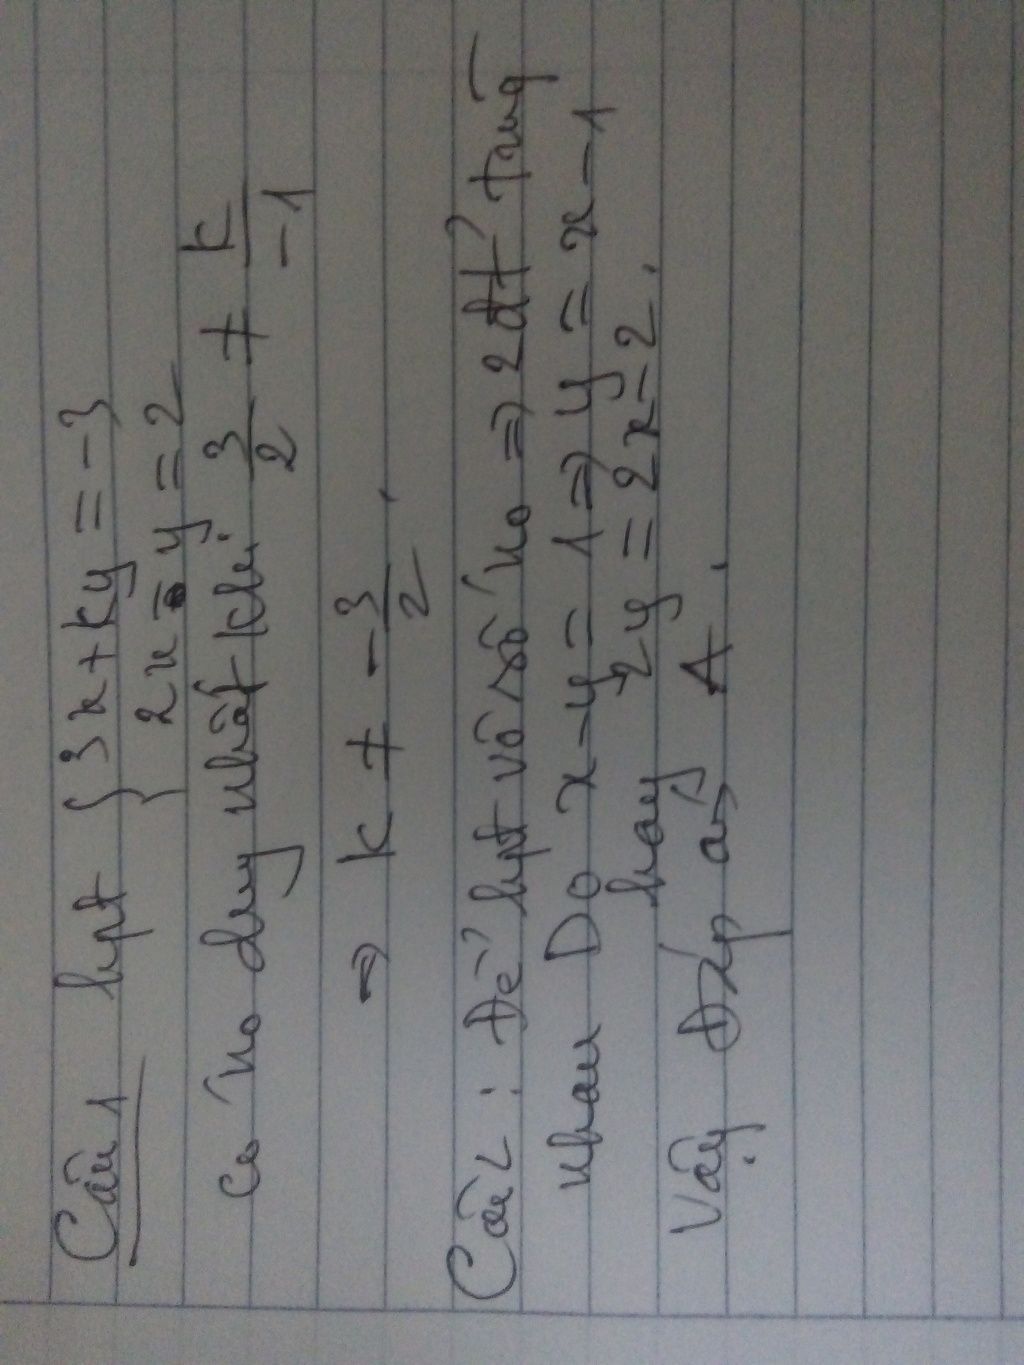 Câu 1 hpt { 3x + ky = -3
2x - y = 2
có n₀ duy nhất khi 3/2 ≠ k/-1
⇒ k ≠ -3/2.
Câu 2 : Để hpt vô số n₀ ⇒ 2 đt trùng
nhau Do x - y = 1 ⇒ y = x - 1
hay 2y = 2x - 2.
Vậy Đáp án A.